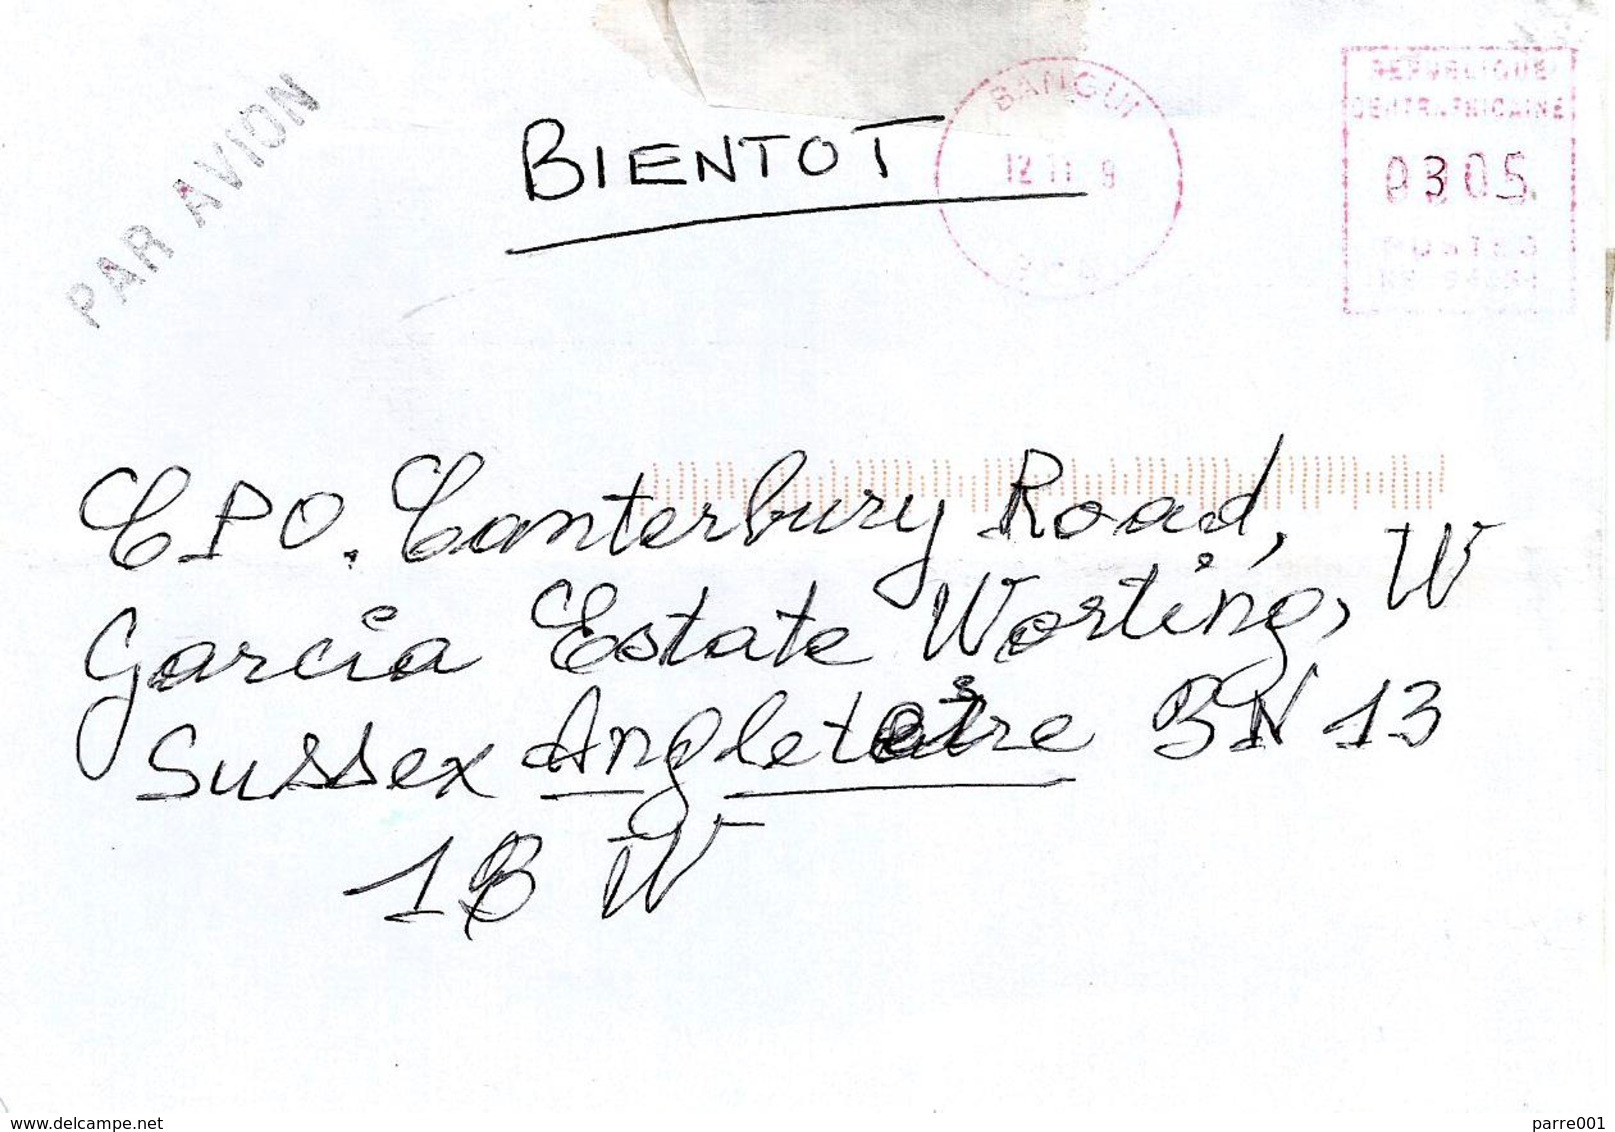 PAR AVION
BIENTOT
BANGUI
12 11 9
REPUBLIQUE
CENTRAFRICAINE
0305
POSTES
CPO. Canterbury Road,
Garcia Estate Worting, W
Sussex Angleterre BN 13
1B W
delcampe.net
parre001